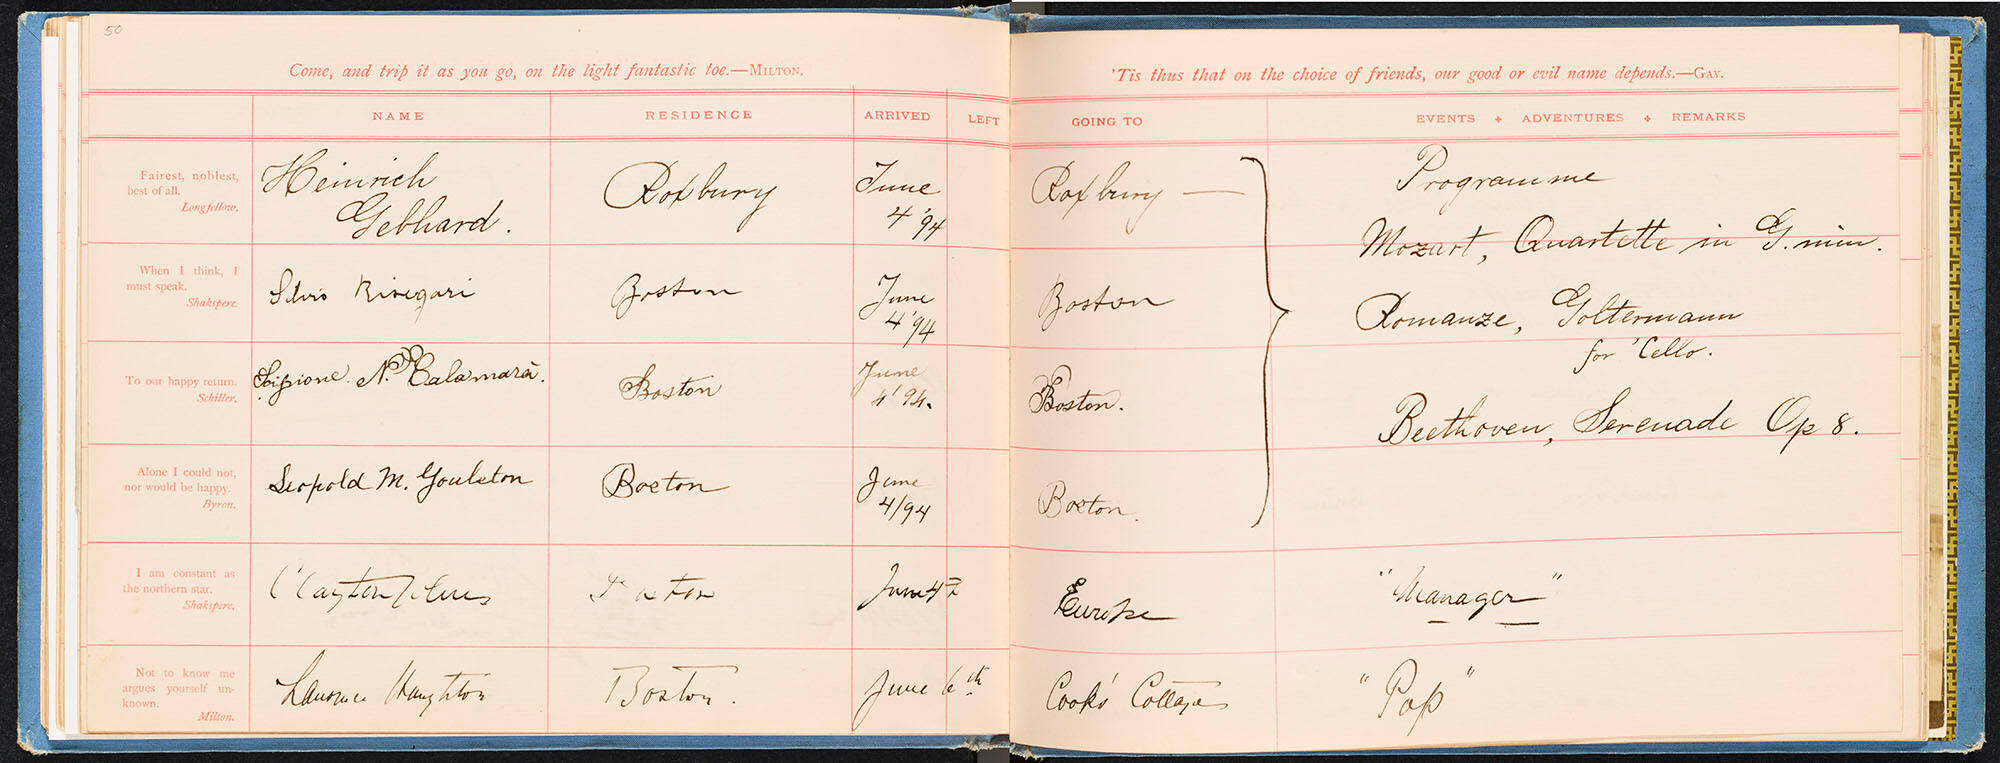 50
Come, and trip it as you go, on the light fantastic toe.—MILTON.
NAME RESIDENCE ARRIVED LEFT
Fairest, noblest,
best of all.
Longfellow.
Heinrich
Gebhard.
Roxbury
June
4 '94
When I think, I
must speak.
Shakspere.
Silvio Risegari
Boston
June
4 '94
To our happy return.
Schiller.
Scipione N. Calamara.
Boston
June
4' 94.
Alone I could not,
nor would be happy.
Byron.
Leopold M. Goulston
Boston
June
4/94
I am constant as
the northern star.
Shakspere.
Clayton Johns
Boston
June 4th
Not to know me
argues yourself un-
known.
Milton.
Laurence Haughton
Boston.
June 6th
'Tis thus that on the choice of friends, our good or evil name depends.—GAY.
GOING TO EVENTS ADVENTURES REMARKS
Roxbury —
Boston
Boston.
Boston.
Programme
Mozart, Quartette in G. min.
Romanze, Goltermann
for 'Cello.
Beethoven, Serenade Op 8.
Europe
"Manager"
Cook's Cottage
"Pop"